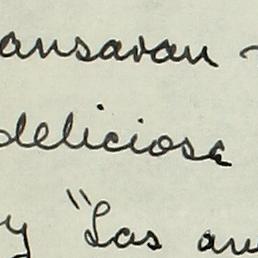 ansaran -
deliciosa
y "Las